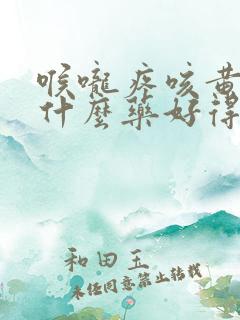 喉嚨疼咳黃
什麼藥好得
和田玉
未经同意禁止转载